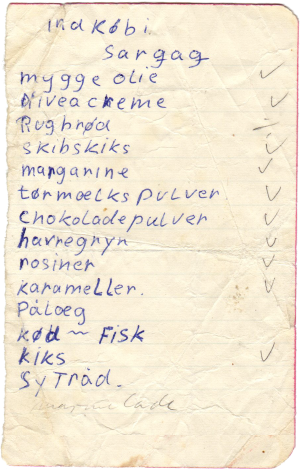 indkøb i
Sargag
mygge olie
Niveacreme
Rugbrød
skibskiks
margarine
tørmælks pulver
chokoladepulver
havregryn
rosiner
karameller.
Pålæg
kød ~ Fisk
kiks
SyTråd.
marmelade